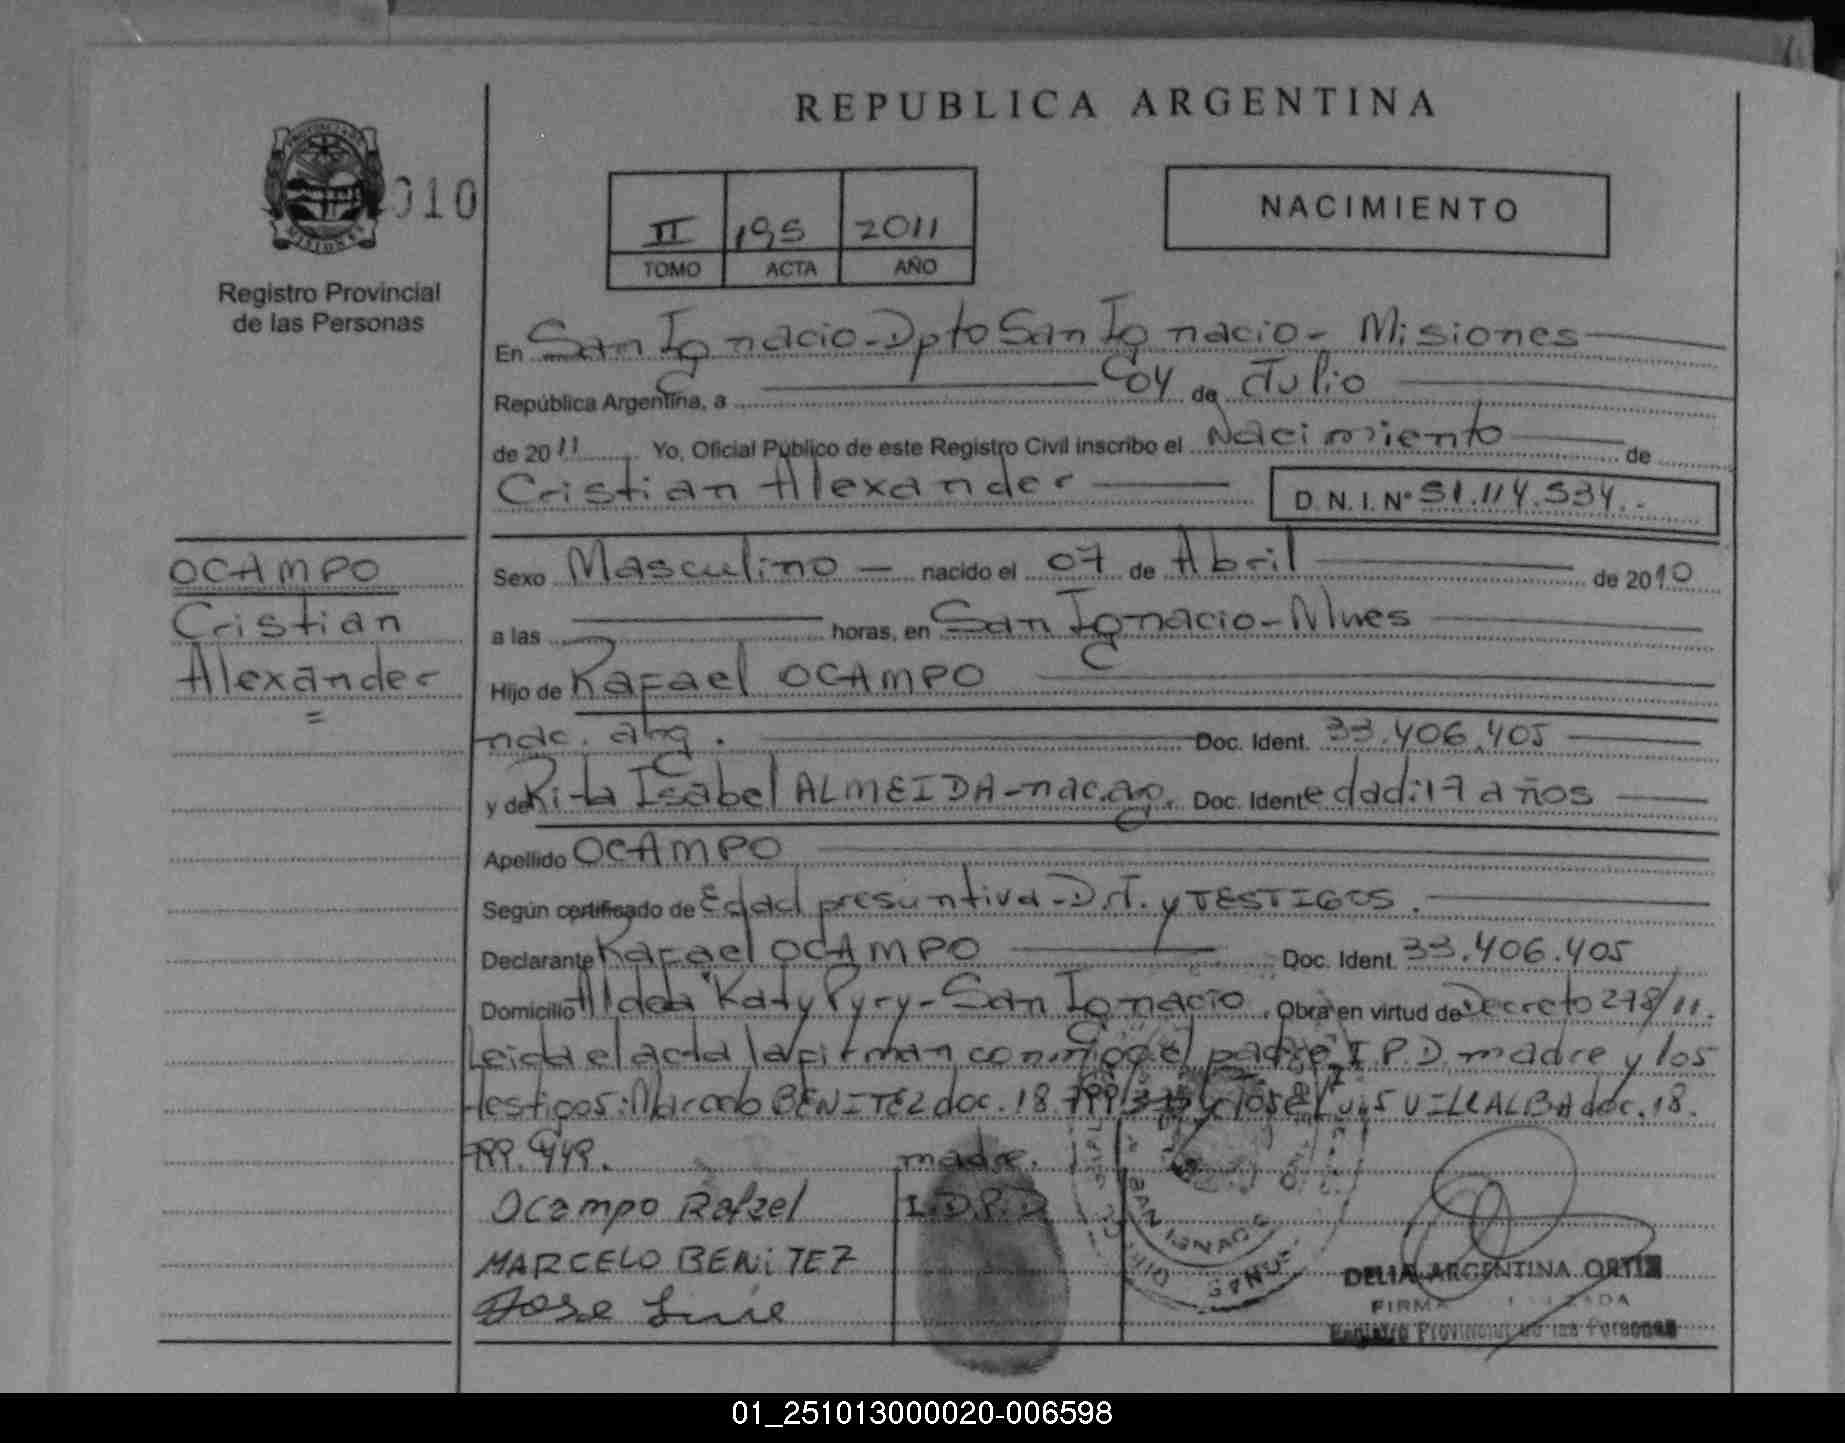 REPUBLICA ARGENTINA
010
Registro Provincial
de las Personas
II 195 2011
TOMO ACTA AÑO
NACIMIENTO
En San Ignacio-Dpto San Ignacio- Misiones
República Argentina, a 04 de Julio
de 2011 Yo, Oficial Público de este Registro Civil inscribo el Nacimiento de
Cristian Alexander D.N.I.Nº 51.114.534.-
OCAMPO
Cristian
Alexander
=
Sexo Masculino — nacido el 07 de Abril de 2010
a las horas, en San Ignacio-Mnes
Hijo de Rafael OCAMPO
nac. arg. Doc. Ident. 33.406.405
y de Rita Isabel ALMEIDA-nac.ag. Doc. Ident edad:17 años
Apellido OCAMPO
Según certificado de Edad presuntiva-D.T. y TESTIGOS.
Declarante Rafael OCAMPO Doc. Ident. 33.406.405
Domicilio Aldea "Katy Pyry- San Ignacio. Obra en virtud de Decreto 278/11.
Leida el acta la firman conmigo el padre, I.P.D. madre y los
testigos: Marcelo BENITEZ doc. 18. y José Luis VILLALBA doc. 18.
799.449.
madre.
Ocampo Rafael I.D.P.D
MARCELO BENITEZ
Jose Luis
SAN IGNACIO
DELIA ARGENTINA ORTIZ
FIRMA
Registro Provincial de las Personas
01_251013000020-006598